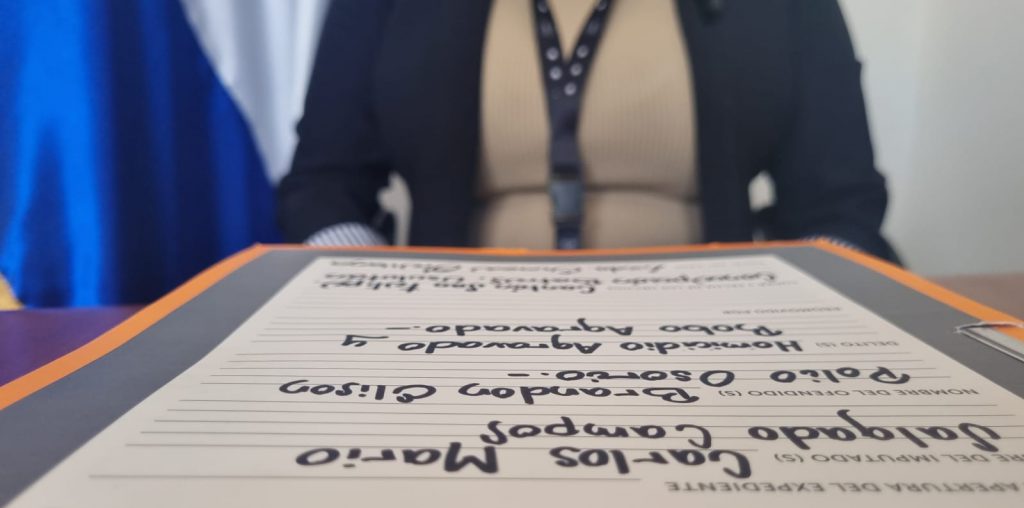 APERTURA DEL EXPEDIENTE
RE DEL IMPUTADO (S) Carlos Mario
Salgado Campos
NOMBRE DEL OFENDIDO (S) Brandon Elison
Polio Osorio.-
DELITO (S) Homicidio Agravado y
Robo Agravado.-
PROMOVIDO POR
Cantón San Felipe,